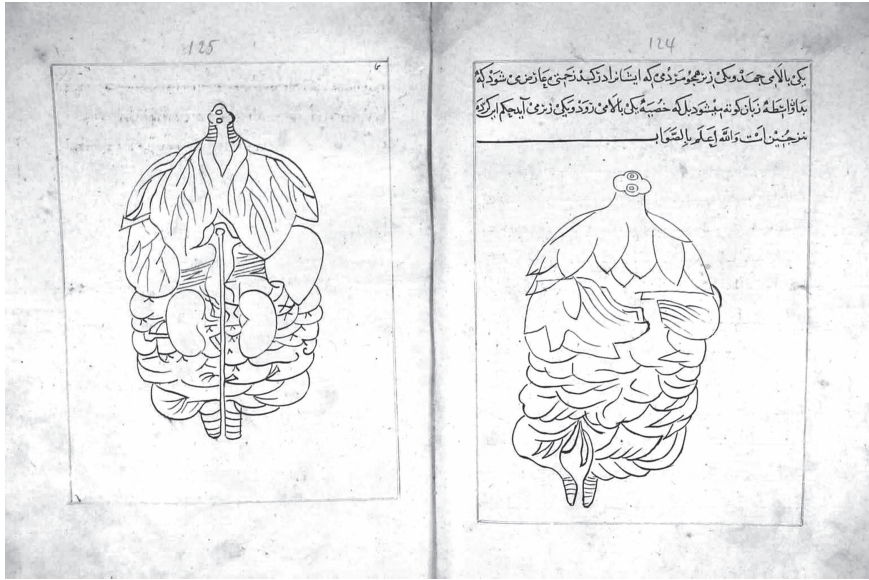 124
یکی بالا می جهد و یکی زیر همچو مردمی که ایشانرا در کبد زحمتی عارض می شود که
زبان کونه میشود بل که خصیهٔ یکی بالا می رود و یکی زیر می آید
نیز چنین است والله اعلم بالصواب
125